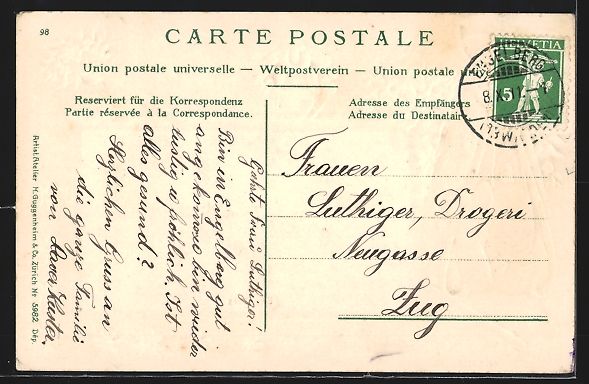 98
CARTE POSTALE
Union postale universelle — Weltpostverein — Union postale uni
Reserviert für die Korrespondenz
Partie réservée à la Correspondance.
Adresse des Empfängers
Adresse du Destinatair
HELVETIA
5
ENGELBERG
8.X
Geehrte Frau Luthiger!
Bin in Engelberg gut
angekommen bin wieder
lustig u fröhlich. Ist
alles gesund?
Herzlichen Gruss an
die ganze Familie
von
Frauen
Luthiger, Drogeri
Neugasse
Zug
Artist. Atelier H. Guggenheim & Co. Zürich Nr 5982 Dép.